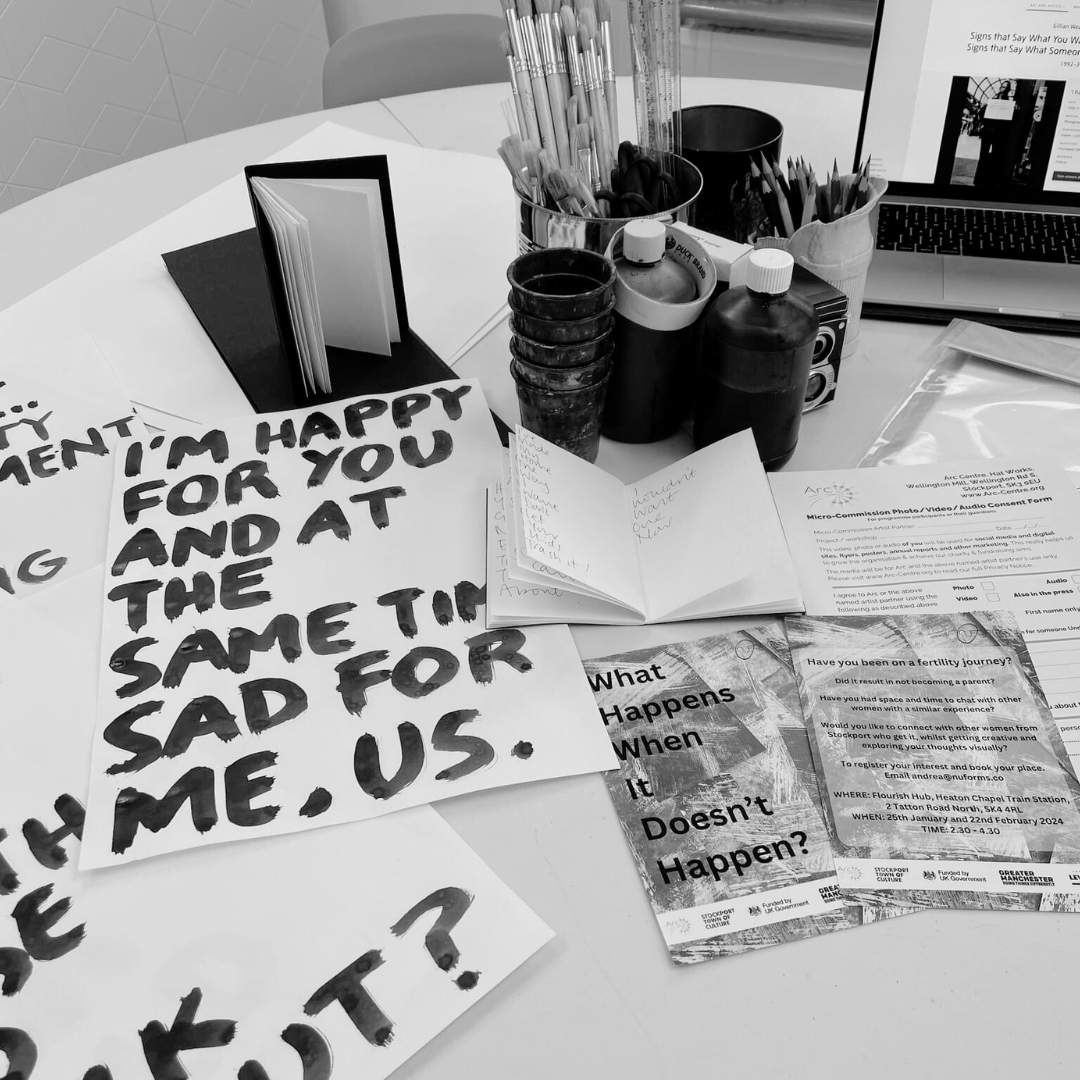 Signs that Say What You
Signs that Say What
1992-3
DUCK BRAND
MENT
I'M HAPPY
FOR YOU
AND AT
THE
SAME
SAD FOR
ME. US.
?
made
my
home
I wouldn't
want
one
now
Above
Arc
Arc Centre, Hat Works,
Wellington Mill, Wellington Rd S,
Stockport, SK3 0EU
www.Arc-Centre.org
Micro-Commission Photo/Video/Audio Consent Form
For programme participants or their guardians
Micro-Commission Artist Partner
Project / workshop Date
This video, photo or audio of you will be used for social media and digital
sites, flyers, posters, annual reports and other marketing. This really helps us
to grow the organisation & achieve our charity & fundraising aims.
The media will be for Arc and the above named artist partner's use only.
Please visit www.Arc-Centre.org to read our full Privacy Notice.
I agree to Arc or the above
named artist partner using the
following as described above
Photo
Video
Audio
Also in the press
First name only
What
Happens
When
It
Doesn't
Happen?
Arc
STOCKPORT
TOWN OF
CULTURE
Funded by
UK Government
Have you been on a fertility journey?
Did it result in not becoming a parent?
Have you had space and time to chat with other
women with a similar experience?
Would you like to connect with other women from
Stockport who get it, whilst getting creative and
exploring your thoughts visually?
To register your interest and book your place.
Email andrea@nuforms.co
WHERE: Flourish Hub, Heaton Chapel Train Station,
2 Tatton Road North, SK4 4RL
WHEN: 25th January and 22nd February 2024
TIME: 2.30 - 4.30
Arc
STOCKPORT
TOWN OF
CULTURE
Funded by
UK Government
GREATER
MANCHESTER
DOING THINGS DIFFERENTLY